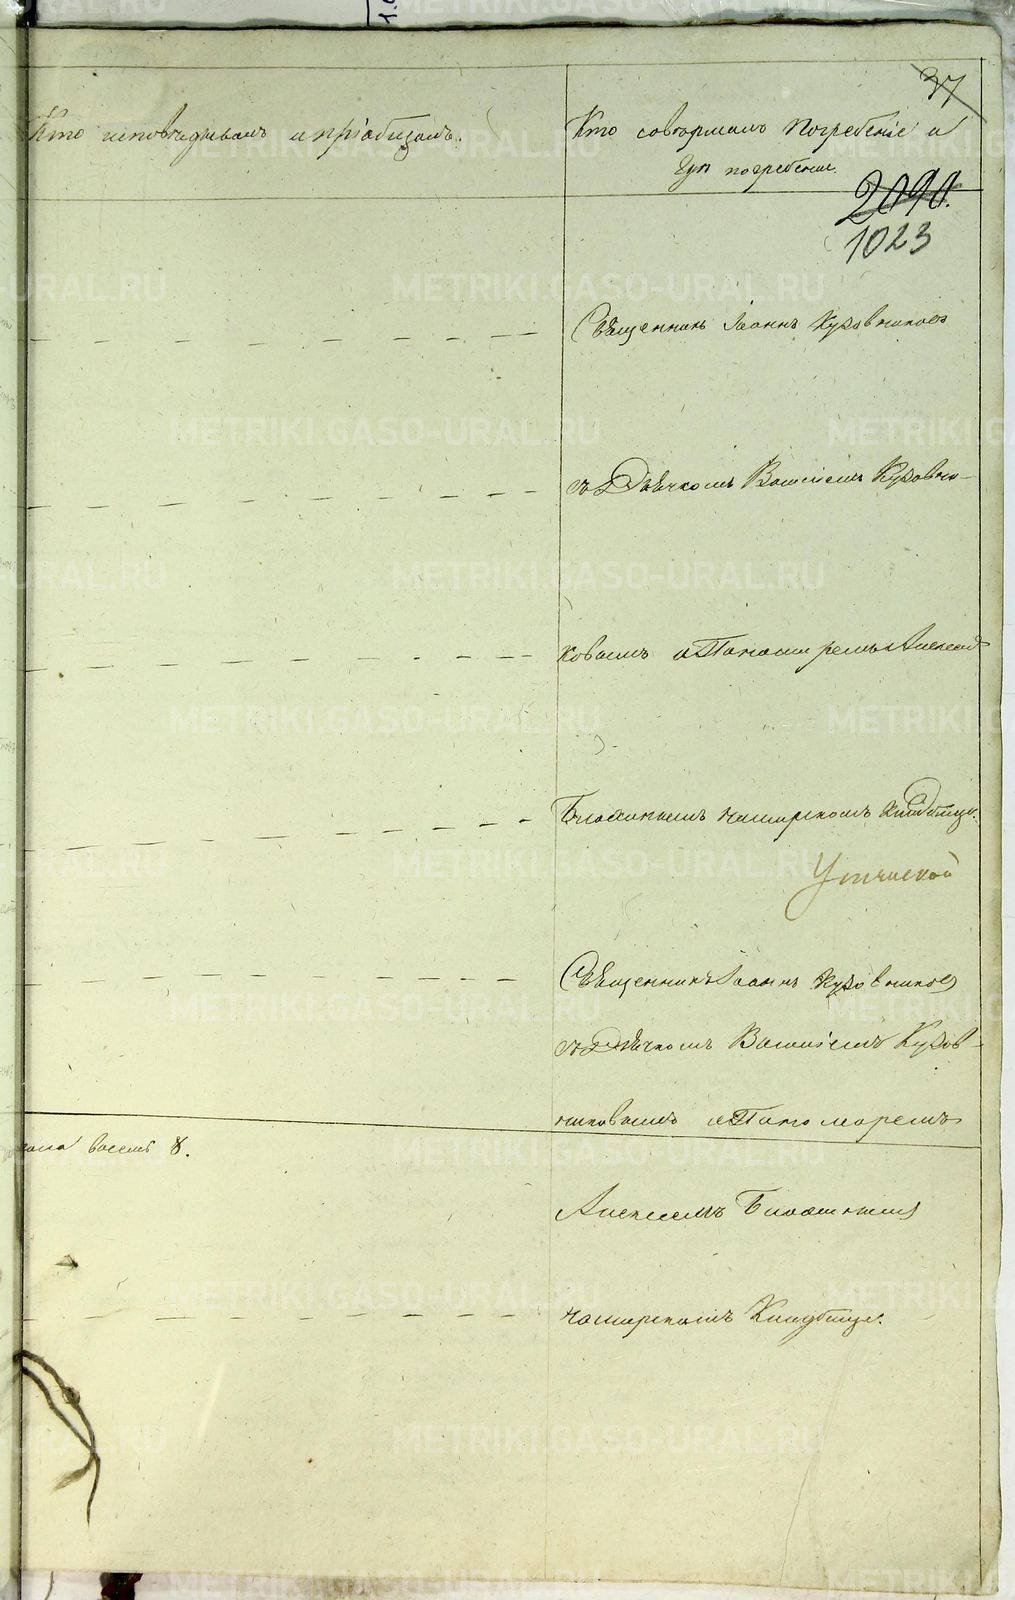 37
Кто исповѣдывалъ и пріобщалъ.
Кто совершалъ погребеніе и
гдѣ погребены.
2090.
1023
Священникъ Іоаннъ Кузовниковъ
съ Дьячкомъ Василіемъ Кузовни-
ковымъ и Пономаремъ Алексѣемъ
на приходскомъ кладбищѣ.
Священникъ Іоаннъ Кузовниковъ
съ Дьячкомъ Василіемъ Кузов-
никовымъ и Пономаремъ
восемь 8.
Алексѣемъ
кладбищѣ.
METRIKI.GASO-URAL.RU